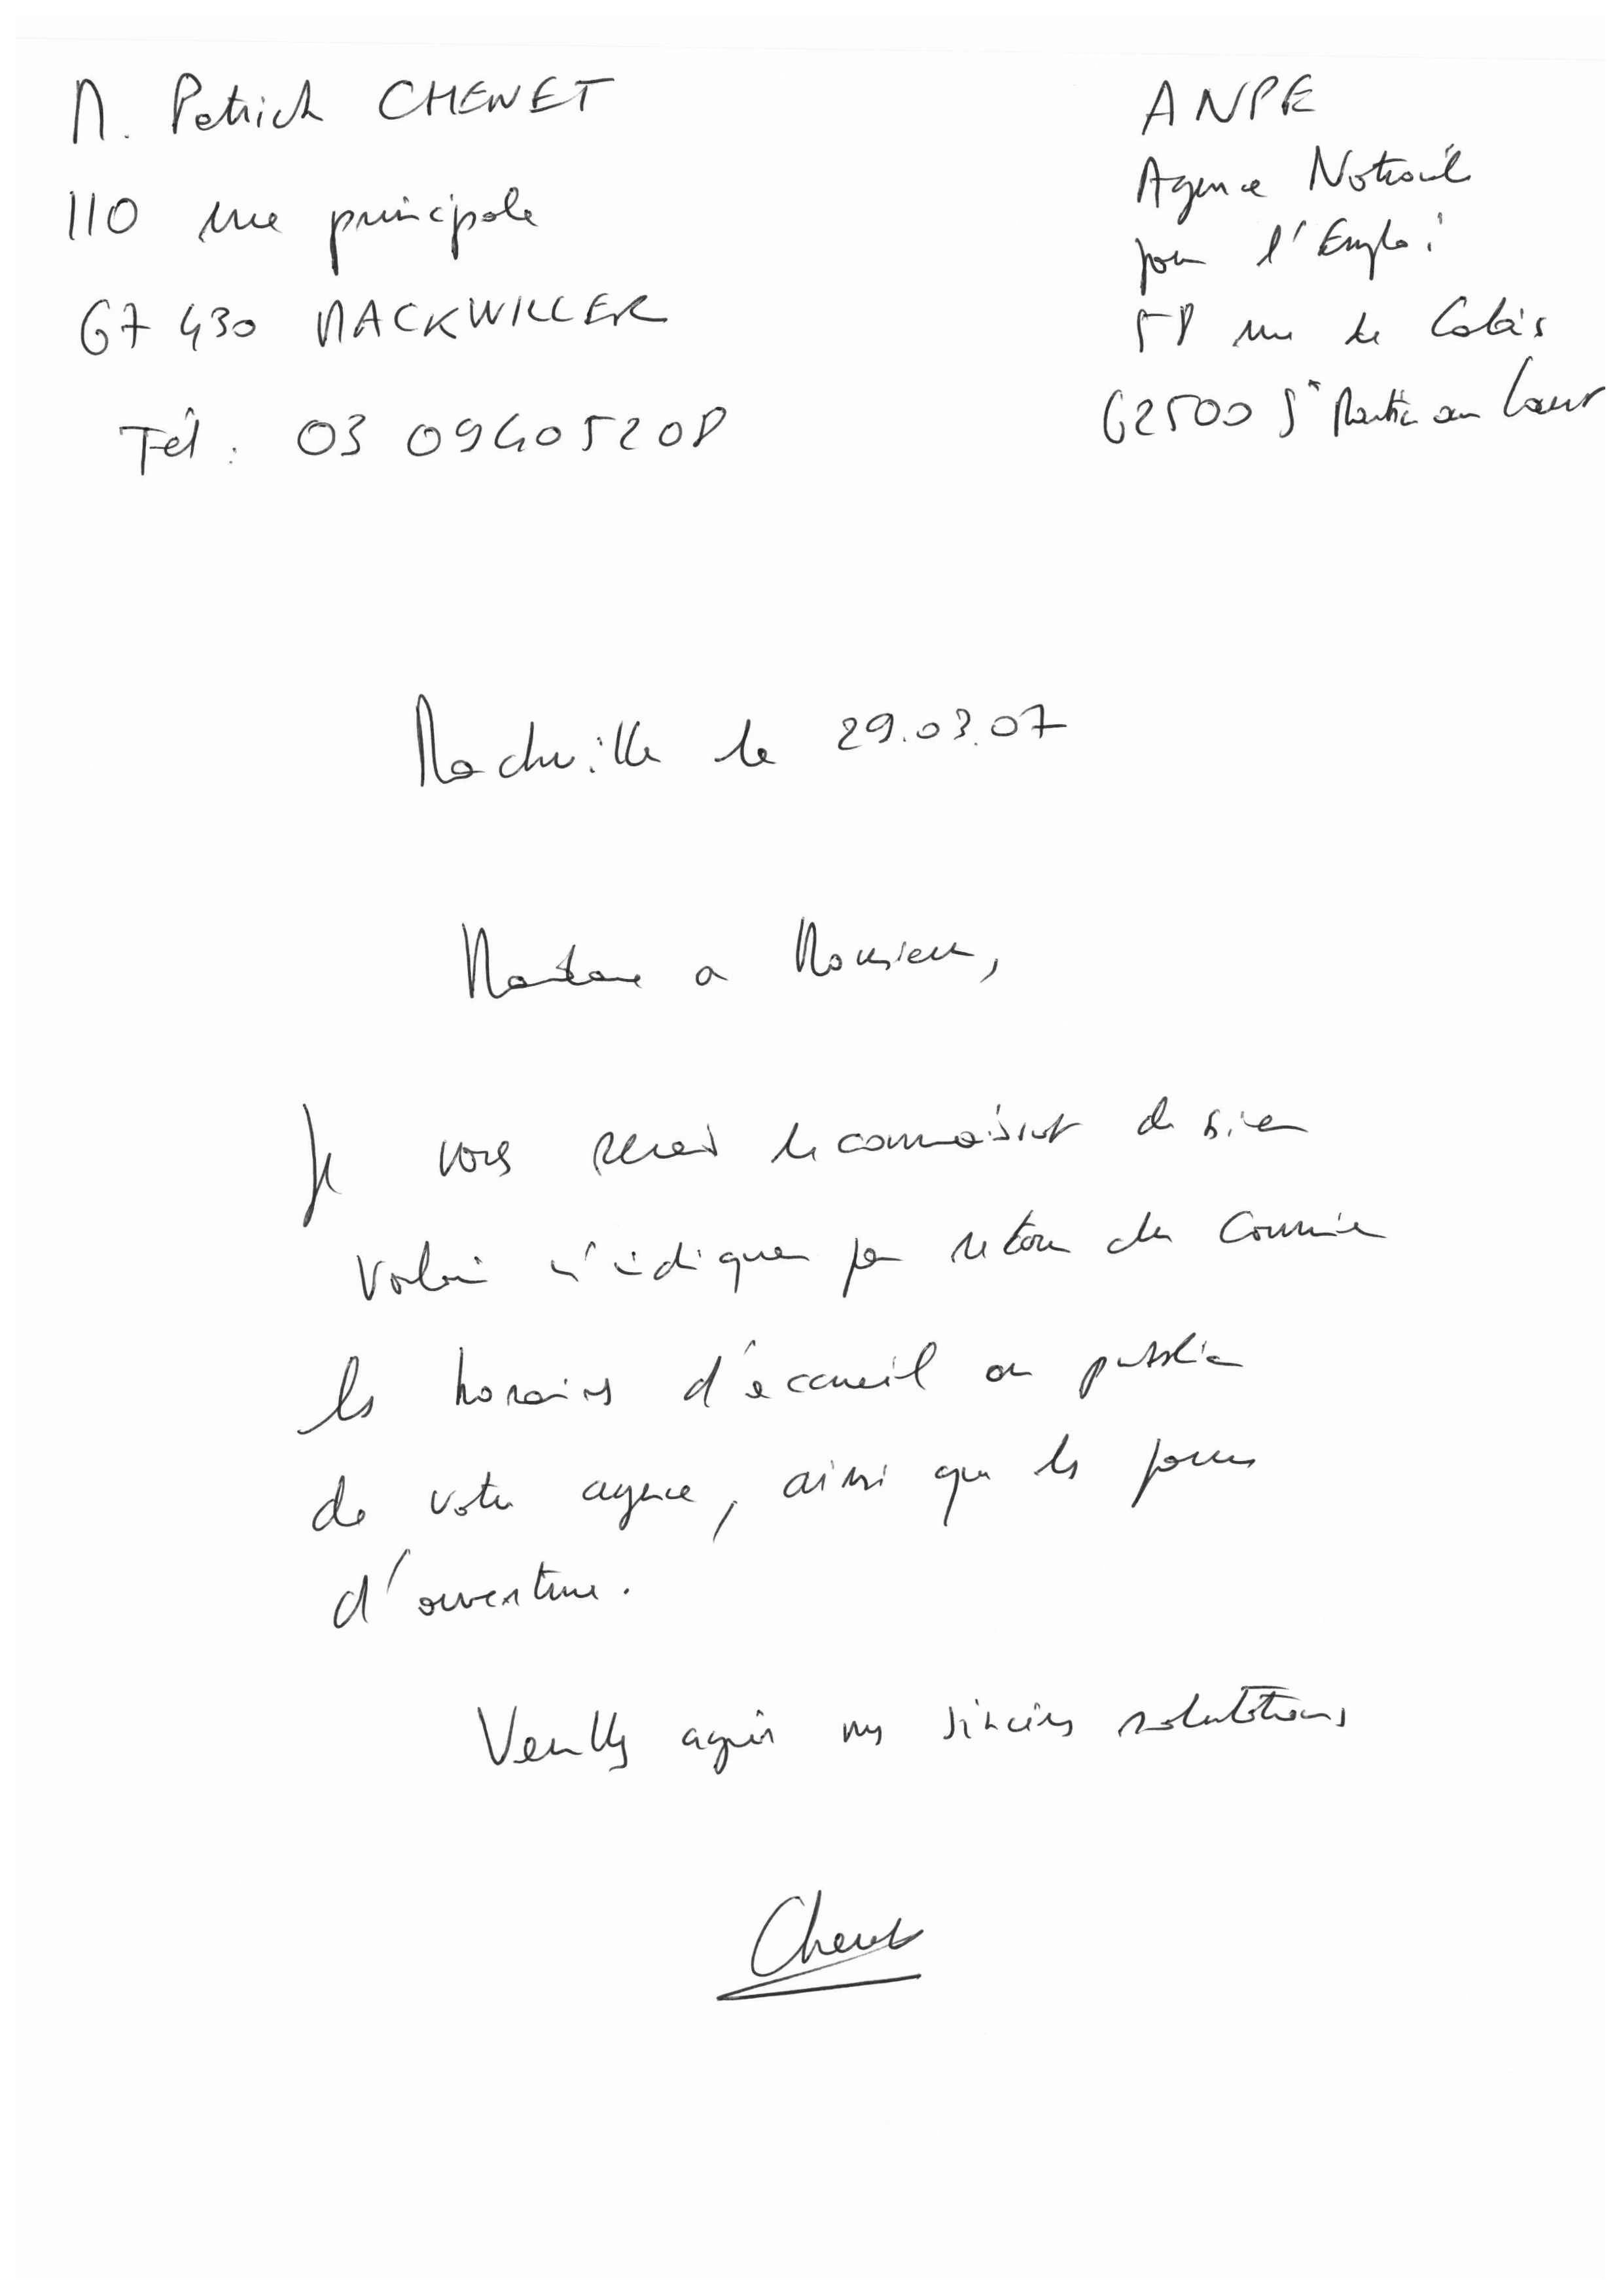 M. Patrick CHENET
110 rue principale
67 430 MACKWILLER
Tél : 03 09 40 52 08
ANPE
Agence Nationale
pour l'Emploi
58 rue de Calais
62500 St Martin au Laert
Mackwiller le 29.03.07
Madame ou Monsieur,
Je vous serais reconnaissant de bien
vouloir m'indiquer par retour du courrier
les horaires d'accueil au public
de votre agence, ainsi que les jours
d'ouverture.
Veuillez agréer mes sincères salutations
Chenet